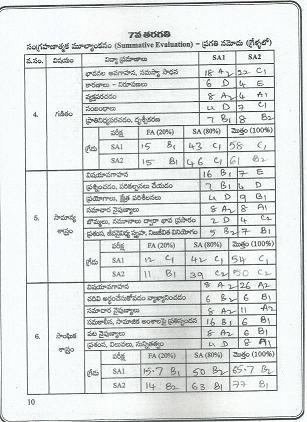 7వ తరగతి
సంగ్రహణాత్మక మూల్యాంకనం (Summative Evaluation) – ప్రగతి నమోదు (గ్రేళ్ళలో)
వ.సం. విషయం విద్యా ప్రమాణాలు SA1 SA2
భావనల అవగాహన, సమస్యా సాధన 18 A2 22 C1
కారణాలు - నిరూపణలు 6 D 4 E
వ్యక్తపరచడం 8 A2 4 A1
4. గణితం సంబంధాలు 4 D 7 C1
ప్రాతినిధ్యపరచడం, దృశ్యీకరణ 7 B1 8 B2
పరీక్ష FA (20%) SA (80%) మొత్తం (100%)
గ్రేడు SA1 15 B1 43 C1 58 C1
SA2 15 B1 46 C1 61 B2
విషయావగాహన 16 B1 7 E
ప్రశ్నించడం, పరికల్పనలు చేయడం 7 B1 4 D
ప్రయోగాలు, క్షేత్ర పరిశీలనలు 4 D 9 B1
5. సామాన్య శాస్త్రం సమాచార నైపుణ్యాలు 8 A2 8 A1
బొమ్మలు, నమూనాల ద్వారా భావ ప్రసారం 2 D 4 C2
ప్రశంస, జీవవైవిధ్య స్పృహ, నిజజీవిత వినియోగం 5 B2 7 B1
పరీక్ష FA (20%) SA (80%) మొత్తం (100%)
గ్రేడు SA1 12 C1 42 C1 54 C1
SA2 11 B1 39 C2 50 C2
విషయావగాహన 8 A2 26 A2
చదివి అర్థంచేసుకోవడం వ్యాఖ్యానించడం 6 B2 6 B1
సమాచార నైపుణ్యాలు 8 A2 11 A2
6. సాంఘిక శాస్త్రం సమకాలీన, సామాజిక అంశాలపై ప్రతిస్పందన 16 B1 6 B1
పట నైపుణ్యాలు 8 A2 6 B1
ప్రశంస, విలువలు, సున్నితత్వం 4 D 8 A1
పరీక్ష FA (20%) SA (80%) మొత్తం (100%)
గ్రేడు SA1 15.7 B1 50 B2 65.7 B2
SA2 14 B2 63 B1 77 B1
10